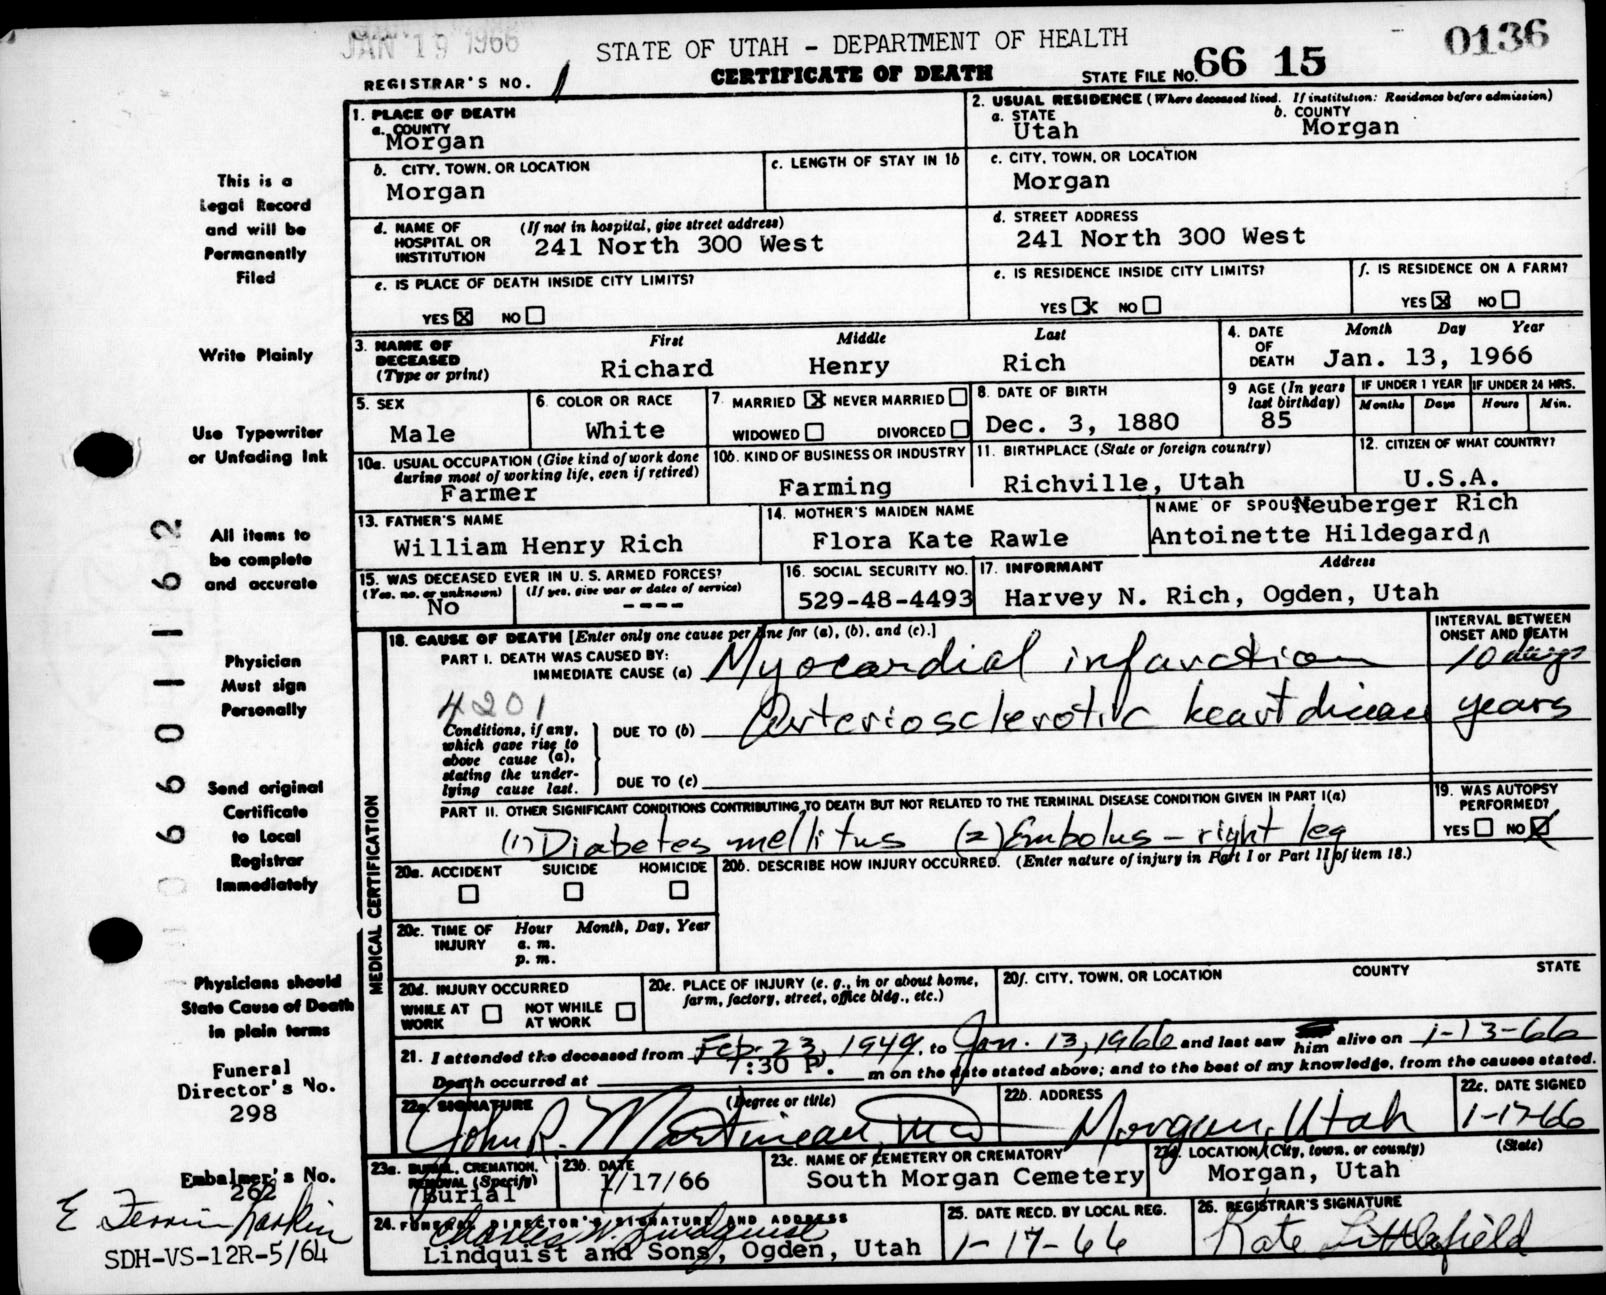 JAN 19 1966
STATE OF UTAH - DEPARTMENT OF HEALTH
0136
REGISTRAR'S NO. 1
CERTIFICATE OF DEATH
STATE FILE NO. 66 15
1. PLACE OF DEATH
a. COUNTY
Morgan
2. USUAL RESIDENCE (Where deceased lived. If institution: Residence before admission)
a. STATE
Utah
b. COUNTY
Morgan
b. CITY, TOWN, OR LOCATION
Morgan
c. LENGTH OF STAY IN 1b
c. CITY, TOWN, OR LOCATION
Morgan
d. NAME OF HOSPITAL OR INSTITUTION
(If not in hospital, give street address)
241 North 300 West
d. STREET ADDRESS
241 North 300 West
e. IS PLACE OF DEATH INSIDE CITY LIMITS?
YES ☒ NO ☐
e. IS RESIDENCE INSIDE CITY LIMITS?
YES ☒ NO ☐
f. IS RESIDENCE ON A FARM?
YES ☒ NO ☐
3. NAME OF DECEASED
(Type or print)
First Middle Last
Richard Henry Rich
4. DATE OF DEATH
Month Day Year
Jan. 13, 1966
5. SEX
Male
6. COLOR OR RACE
White
7. MARRIED ☒ NEVER MARRIED ☐
WIDOWED ☐ DIVORCED ☐
8. DATE OF BIRTH
Dec. 3, 1880
9 AGE (In years last birthday)
85
IF UNDER 1 YEAR
Months Days
IF UNDER 24 HRS.
Hours Min.
10a. USUAL OCCUPATION (Give kind of work done during most of working life, even if retired)
Farmer
10b. KIND OF BUSINESS OR INDUSTRY
Farming
11. BIRTHPLACE (State or foreign country)
Richville, Utah
12. CITIZEN OF WHAT COUNTRY?
U.S.A.
13. FATHER'S NAME
William Henry Rich
14. MOTHER'S MAIDEN NAME
Flora Kate Rawle
NAME OF SPOUS Neuberger Rich
Antoinette Hildegard
15. WAS DECEASED EVER IN U. S. ARMED FORCES?
(Yes, no, or unknown) (If yes, give war or dates of service)
No ----
16. SOCIAL SECURITY NO.
529-48-4493
17. INFORMANT Address
Harvey N. Rich, Ogden, Utah
18. CAUSE OF DEATH [Enter only one cause per line for (a), (b), and (c).]
INTERVAL BETWEEN ONSET AND DEATH
PART I. DEATH WAS CAUSED BY:
IMMEDIATE CAUSE (a) Myocardial infarction 10 days
4201
Conditions, if any, which gave rise to above cause (a), stating the underlying cause last.
DUE TO (b) Arteriosclerotic heart disease years
DUE TO (c)
PART II. OTHER SIGNIFICANT CONDITIONS CONTRIBUTING TO DEATH BUT NOT RELATED TO THE TERMINAL DISEASE CONDITION GIVEN IN PART I(a)
(1) Diabetes mellitus (2) Embolus - right leg
19. WAS AUTOPSY PERFORMED?
YES ☐ NO ☒
20a. ACCIDENT SUICIDE HOMICIDE
☐ ☐ ☐
20b. DESCRIBE HOW INJURY OCCURRED. (Enter nature of injury in Part I or Part II of item 18.)
20c. TIME OF INJURY
Hour Month, Day, Year
a. m.
p. m.
20d. INJURY OCCURRED
WHILE AT WORK ☐ NOT WHILE AT WORK ☐
20e. PLACE OF INJURY (e. g., in or about home, farm, factory, street, office bldg., etc.)
20f. CITY, TOWN, OR LOCATION COUNTY STATE
21. I attended the deceased from Feb. 23, 1949, to Jan. 13, 1966 and last saw him alive on 1-13-66
Death occurred at 7:30 P. m on the date stated above; and to the best of my knowledge, from the causes stated.
22a. SIGNATURE (Degree or title)
John R. Martineau, MD
22b. ADDRESS
Morgan, Utah
22c. DATE SIGNED
1-17-66
23a. BURIAL, CREMATION, REMOVAL (Specify)
Burial
23b. DATE
1/17/66
23c. NAME OF CEMETERY OR CREMATORY
South Morgan Cemetery
23d. LOCATION (City, town, or county) (State)
Morgan, Utah
24. FUNERAL DIRECTOR'S SIGNATURE AND ADDRESS
Charles W. Lindquist
Lindquist and Sons, Ogden, Utah
25. DATE RECD. BY LOCAL REG.
1-17-66
26. REGISTRAR'S SIGNATURE
Kate Littlefield
MEDICAL CERTIFICATION
This is a
Legal Record
and will be
Permanently
Filed
Write Plainly
Use Typewriter
or Unfading Ink
All items to
be complete
and accurate
Physician
Must sign
Personally
Send original
Certificate
to Local
Registrar
Immediately
Physicians should
State Cause of Death
in plain terms
Funeral
Director's No.
298
Embalmer's No.
262
E Ferrin Larkin
SDH-VS-12R-5/64
06601162